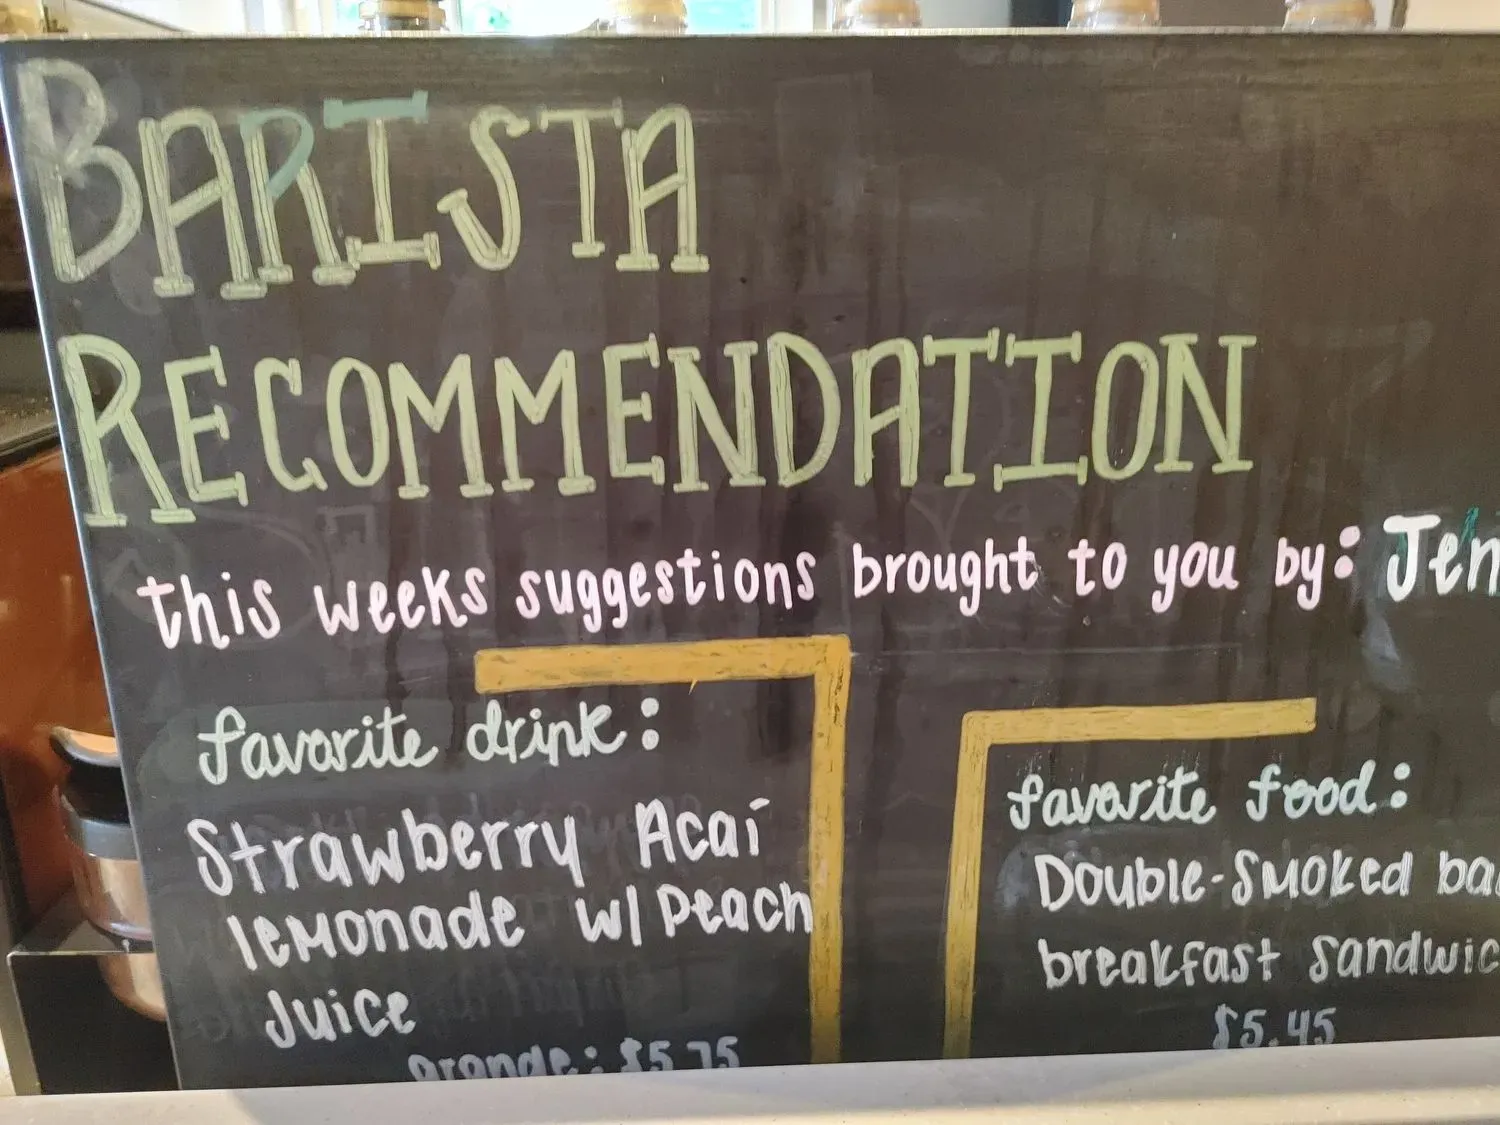 BARISTA
RECOMMENDATION
this weeks suggestions brought to you by: Jen
favorite drink:
Strawberry Acaí
lemonade w/ Peach
Juice
grande: $5.75
favorite food:
Double-Smoked ba
breakfast sandwic
$5.45